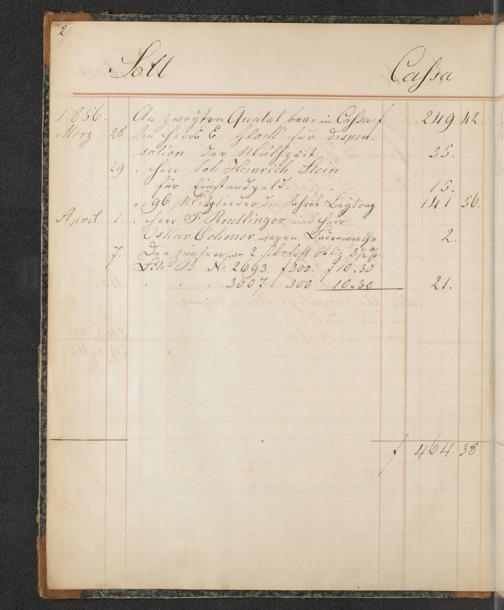 2
Soll Cassa
1856. An zweyten Quartal baar in Cassa f 249 42.
Merz 28 Von Herrn E. für Dispen-
sation der Mühlzeit 35.
29. " Herr Joh Heinrich Stein
für Einstandgeld 15.
" 96 Mitglieder die Jahres Beytrag 141 56.
April 1. " Herr F. Reutlinger und Herr
Oskar wegen 2.
7. Den Zinsen von 2 Oblig 3½ %
Lit. B No 2693 f 300. f 10.30
" " 3607 300 10.30 21.
f 464. 38.